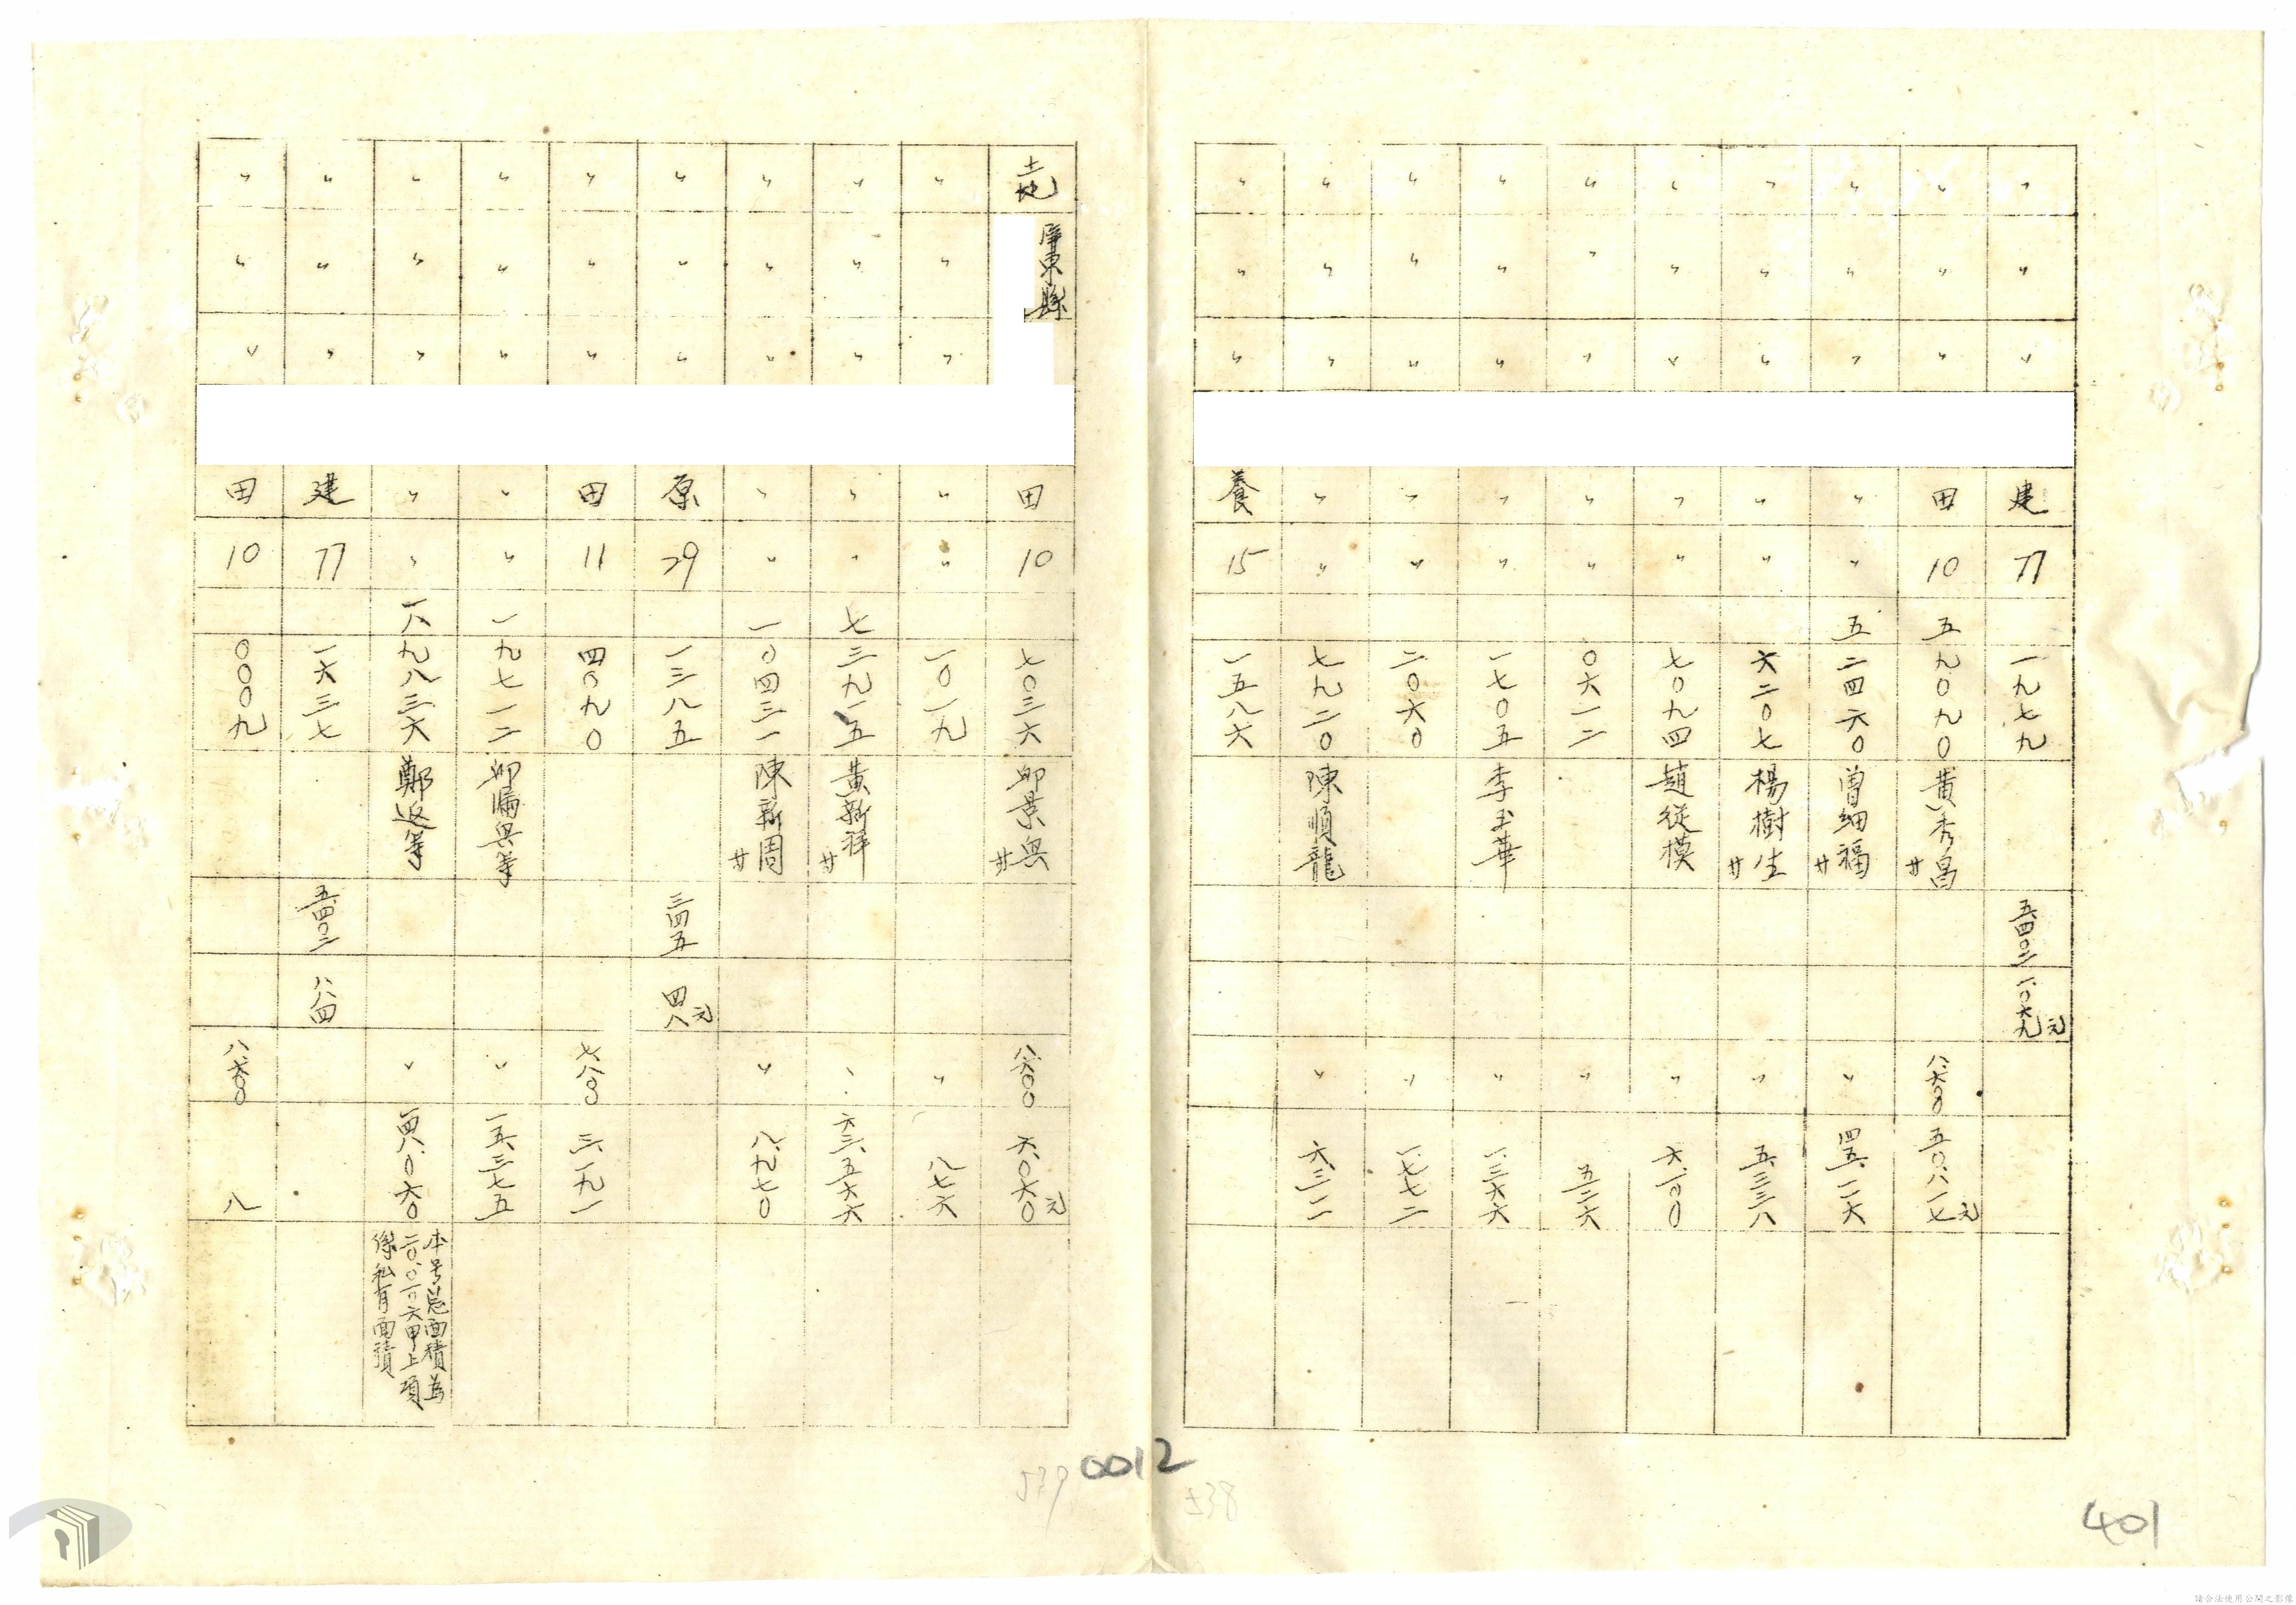 〃 〃 〃 建 77 一九七九 五四〇二 一〇六九元
〃 〃 〃 田 10 五九〇九〇 黄秀昌 廿 八六〇〇 五〇八一七元
〃 〃 〃 〃 〃 五二四六〇 曽細福 廿 〃 四五一一六
〃 〃 〃 〃 〃 六二〇七 楊樹生 廿 〃 五三三八
〃 〃 〃 〃 〃 七〇九四 趙從模 〃 六一〇〇
〃 〃 〃 〃 〃 〇六一二 〃 五二六
〃 〃 〃 〃 〃 一七〇五 李玉華 〃
〃 〃 〃 〃 〃 二〇六〇 〃 一七七二
〃 〃 〃 〃 〃 七九二〇 陳順龍 〃
〃 〃 〃 養 15 一五八六
土地 屏東縣 田 10 七〇三六 邱景興 八六〇〇 六〇六〇元
〃 〃 〃 〃 〃 一〇一九 〃 八七六
〃 〃 〃 〃 〃 七三九一五 黄新祥 廿 六三五六六
〃 〃 〃 〃 〃 一〇四三一 陳新周 廿 〃 八九七〇
〃 〃 〃 原 29 一三八五 三四五 四八元
〃 〃 〃 田 11 四〇九〇 七八〇〇 三一九一
〃 〃 〃 〃 〃 一九七一二 〃 一五三七五
〃 〃 〃 〃 〃 一八九八三六 鄭返等 〃 一四八〇六〇
本号总面積為
六甲上項
係私有面積
〃 〃 〃 建 77 一六三七 五四〇二 八八四
〃 〃 〃 田 10 〇〇〇九 八六〇〇 八
0012
539
538
401
請合法使用公開之影像